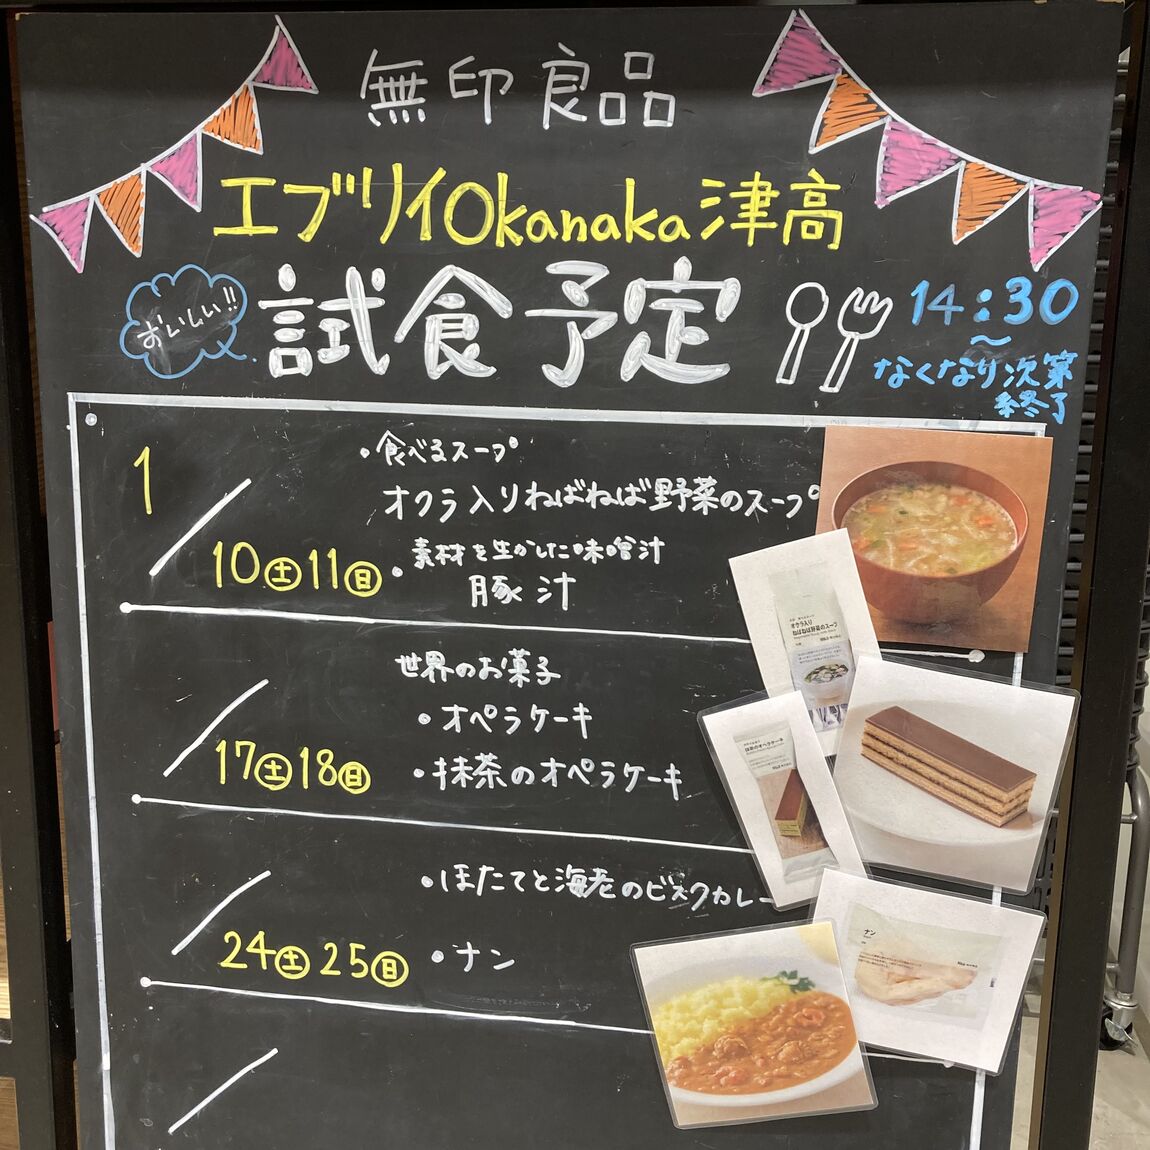 無印良品
エブリイOkanaka津高
おいしい!!
試食予定
14:30
～
なくなり次第
終了
1/
10土11日
・食べるスープ
オクラ入りねばねば野菜のスープ
・素材を生かした味噌汁
豚汁
/
17土18日
世界のお菓子
・オペラケーキ
・抹茶のオペラケーキ
/
24土25日
・ほたてと海老のビスクカレー
・ナン
/
オクラ入り
ねばねば野菜のスープ
抹茶のオペラケーキ
ナン